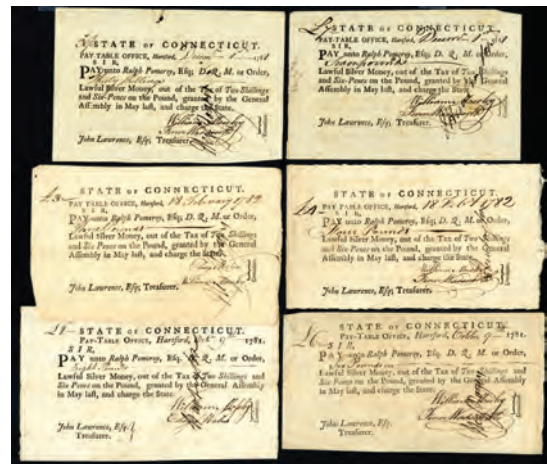 STATE OF CONNECTICUT.
PAY-TABLE OFFICE, Hartford, 1781
SIR,
PAY unto Ralph Pomeroy, Esq; D. Q. M. or Order,
Lawful Silver Money, out of the Tax of Two Shillings
and Six-Pence on the Pound, granted by the General
Assembly in May last, and charge the State.
William Moseley
John Lawrence, Esq; Treasurer.
STATE OF CONNECTICUT.
PAY-TABLE OFFICE, Hartford,
SIR,
PAY unto Ralph Pomeroy, Esq; D. Q. M. or Order,
Seven pounds
Lawful Silver Money, out of the Tax of Two Shillings
and Six-Pence on the Pound, granted by the General
Assembly in May last, and charge the State.
William Moseley
John Lawrence, Esq; Treasurer.
STATE OF CONNECTICUT.
PAY TABLE OFFICE, Hartford, 18 February 1782
SIR,
PAY unto Ralph Pomeroy, Esq; D. Q. M. or Order,
Three Pounds
Lawful Silver Money, out of the Tax of Two Shillings
and Six Pence on the Pound, granted by the General
Assembly in May last, and charge the State.
John Lawrence, Esq; Treasurer.
STATE OF CONNECTICUT.
PAY TABLE OFFICE, Hartford, 18 Feb 1782
SIR,
PAY unto Ralph Pomeroy, Esq; D. Q. M. or Order,
Pounds
Lawful Silver Money, out of the Tax of Two Shillings
and Six Pence on the Pound, granted by the General
Assembly in May last, and charge the State.
John Lawrence, Esq; Treasurer.
£8 STATE OF CONNECTICUT.
PAY-TABLE OFFICE, Hartford, 9 1781.
SIR,
PAY unto Ralph Pomeroy, Esq. D. Q. M. or Order,
Eight Pounds
Lawful Silver Money, out of the Tax of Two Shillings and
Six Pence on the Pound, granted by the General Assembly
in May last, and charge the State.
William Moseley
John Lawrence, Esq;
Treasurer.
£6 STATE OF CONNECTICUT.
PAY-TABLE OFFICE, Hartford, October 9 1781.
SIR,
PAY unto Ralph Pomeroy, Esq. D. Q. M. or Order,
Six Pounds
Lawful Silver Money, out of the Tax of Two Shillings and
Six Pence on the Pound, granted by the General Assembly
in May last, and charge the State.
William Moseley
John Lawrence, Esq;
Treasurer.